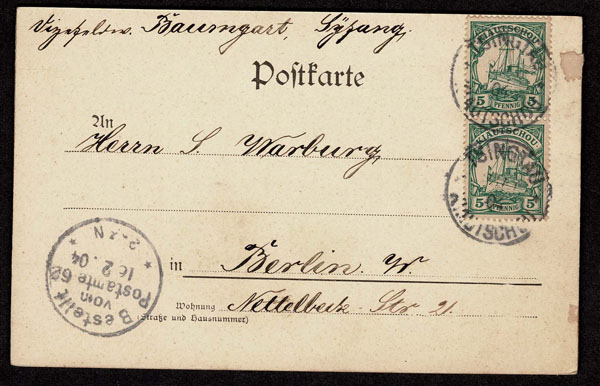 Vizefeldw. Baumgart, Syfang.
Postkarte
An
Herrn S. Warburg
in Berlin. W.
Wohnung Nettelbeck-Str 21.
(Straße und Hausnummer)
KIAUTSCHOU
5 PFENNIG 5
KIAUTSCHOU
5 PFENNIG 5
TSINGTAU
KIAUTSCHOU
TSINGTAU
KIAUTSCHOU
Bestellt
vom
Postamte 62
16 2. 04
2-3 N